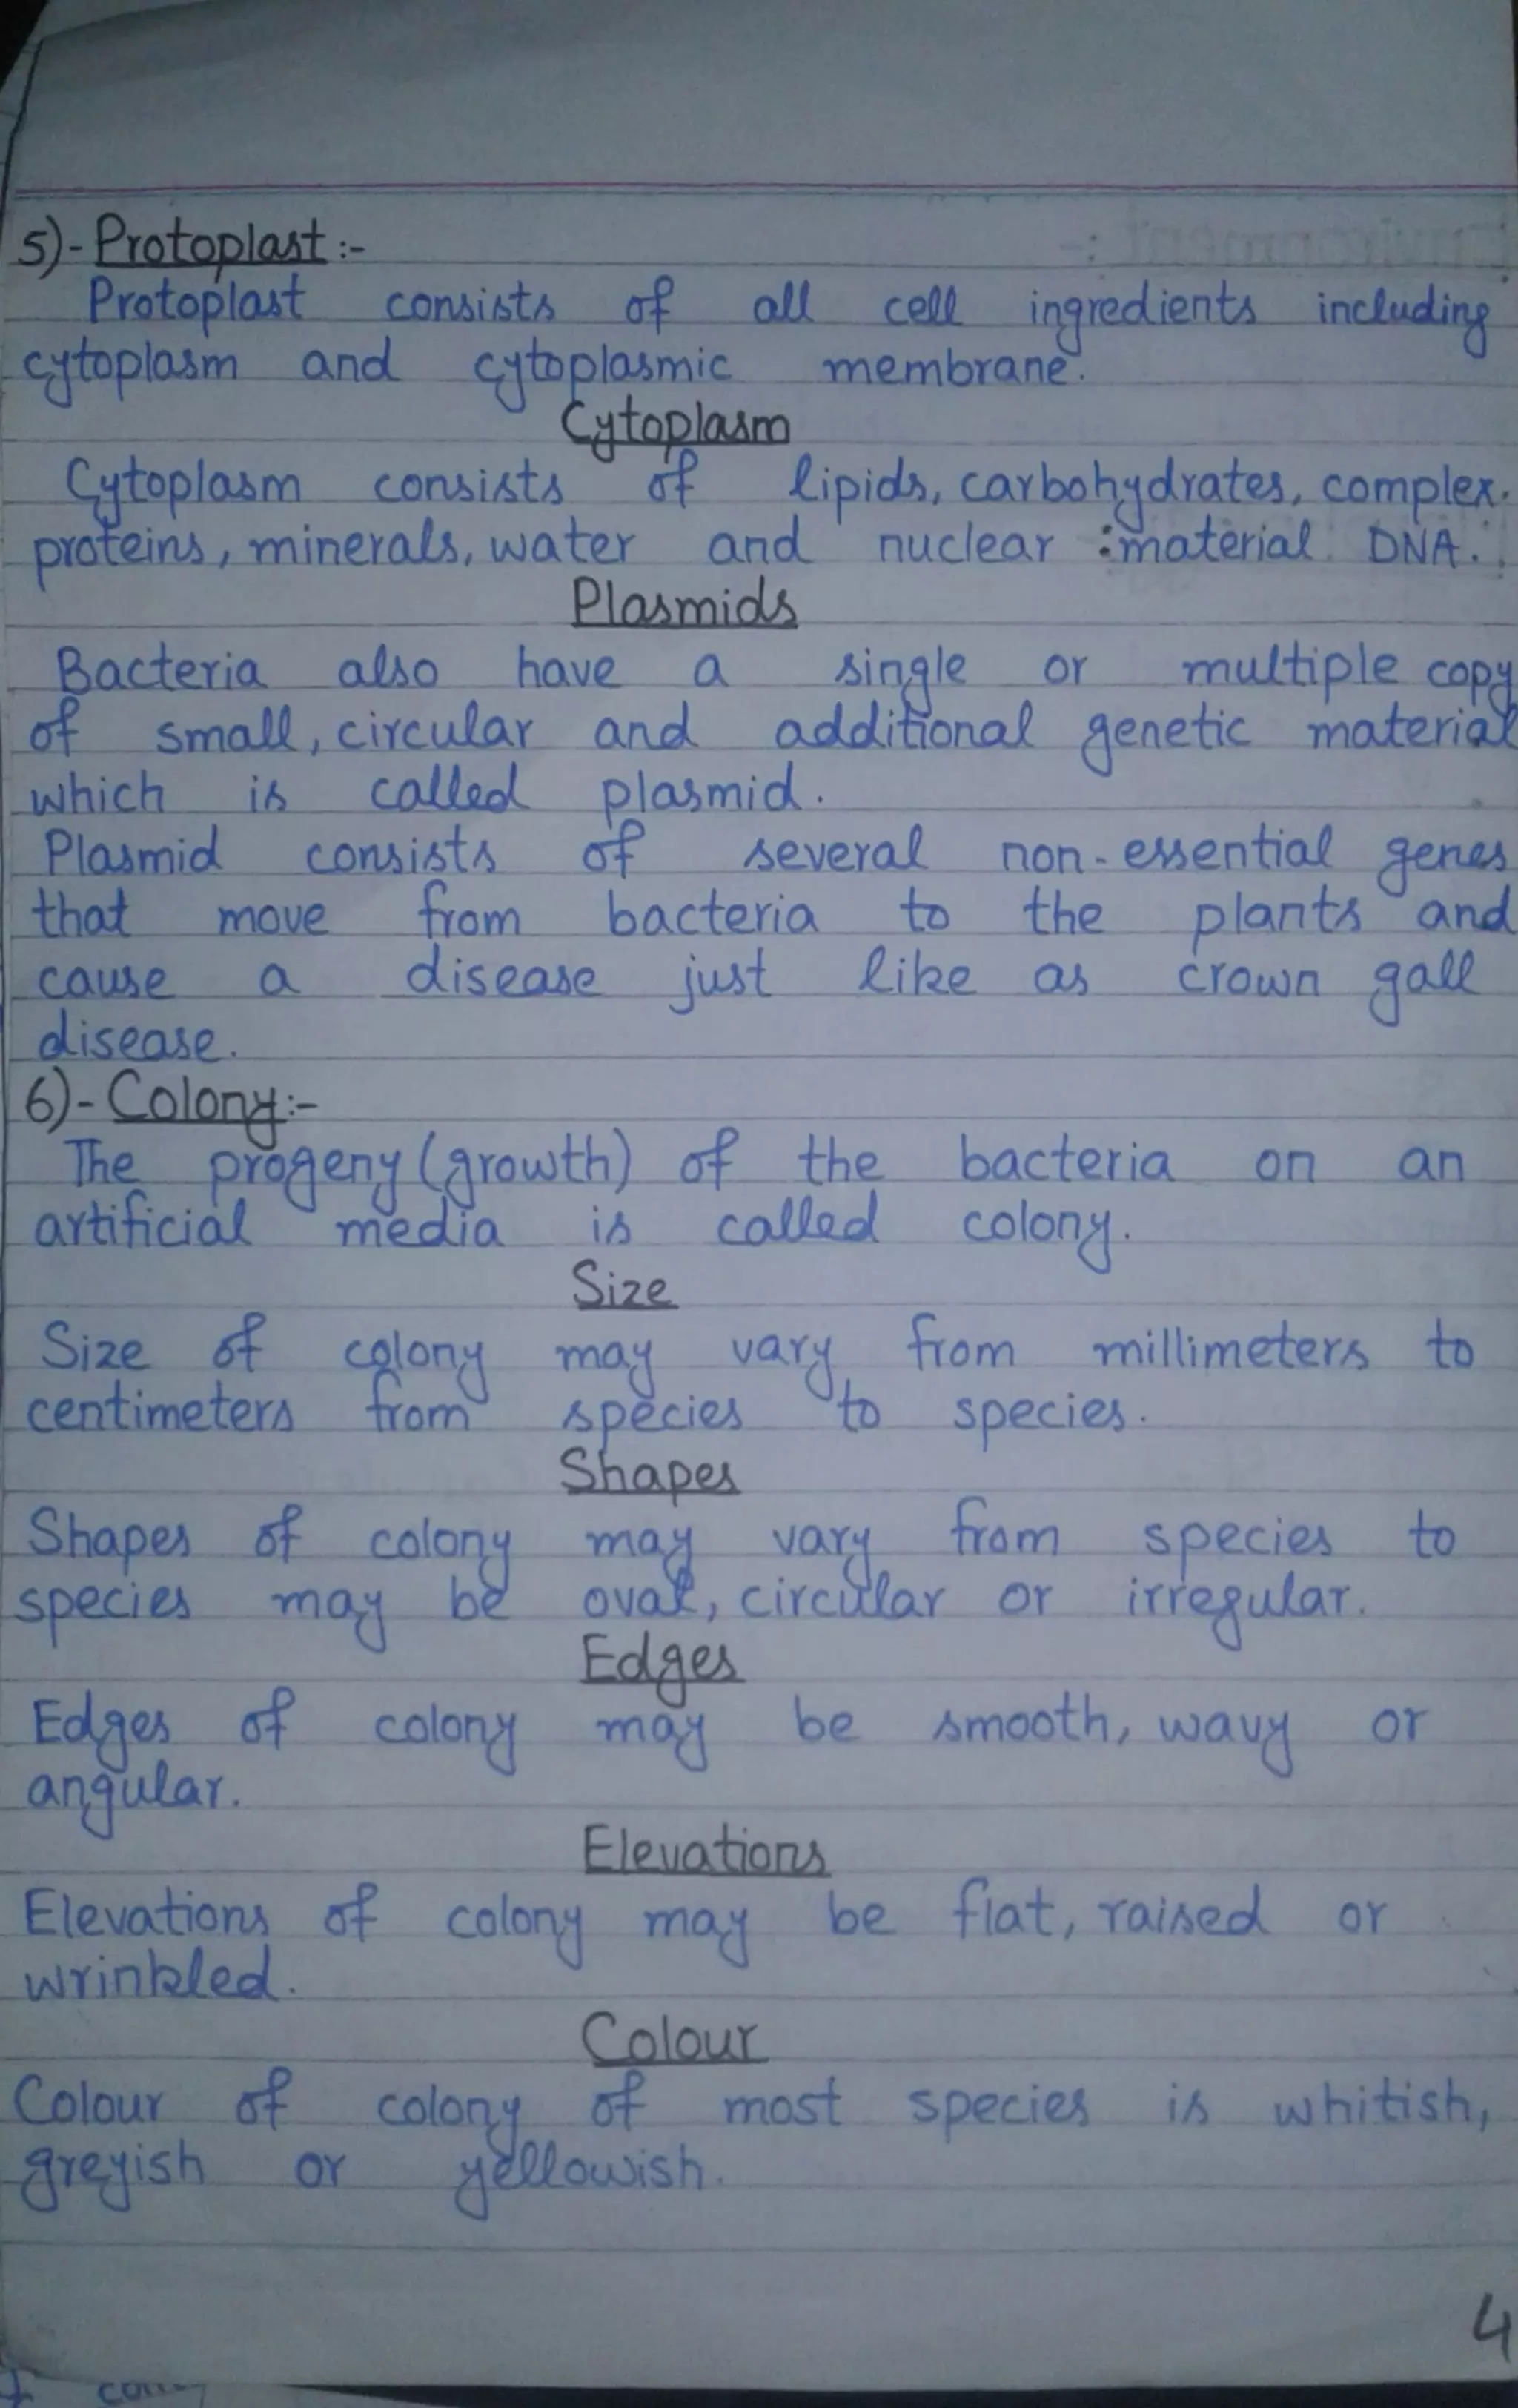 5)- Protoplast :-
Protoplast consists of all cell ingredients including
cytoplasm and cytoplasmic membrane.
Cytoplasm
Cytoplasm consists of lipids, carbohydrates, complex
proteins, minerals, water and nuclear material DNA.
Plasmids
Bacteria also have a single or multiple copy
of small, circular and additional genetic material
which is called plasmid.
Plasmid consists of several non-essential genes
that move from bacteria to the plants and
cause a disease just like as crown gall
disease.
6)- Colony:-
The progeny (growth) of the bacteria on an
artificial media is called colony.
Size
Size of colony may vary from millimeters to
centimeters from species to species.
Shapes
Shapes of colony may vary from species to
species may be oval, circular or irregular.
Edges
Edges of colony may be smooth, wavy or
angular.
Elevations
Elevations of colony may be flat, raised or
wrinkled.
Colour
Colour of colony of most species is whitish,
greyish or yellowish.
4